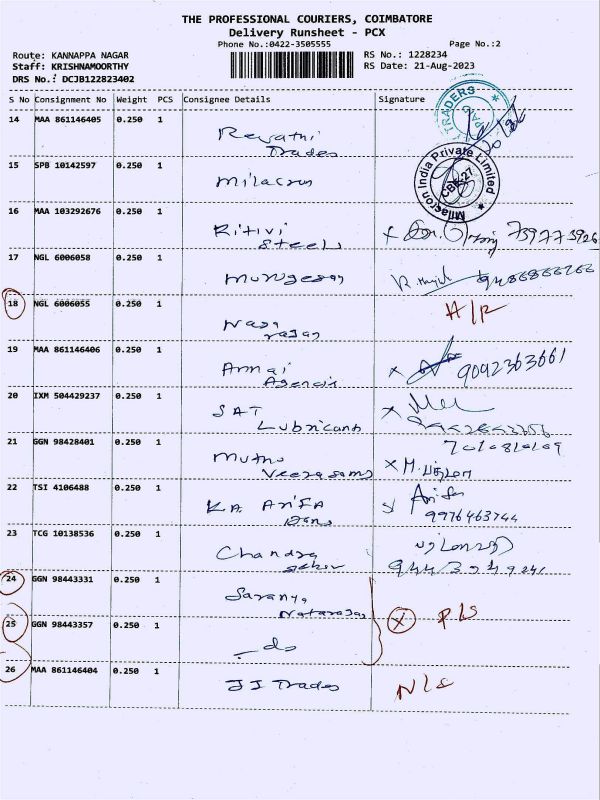 THE PROFESSIONAL COURIERS, COIMBATORE
Delivery Runsheet - PCX
Phone No.:0422-3505555
Page No.:2
Route: KANNAPPA NAGAR
RS No.: 1228234
Staff: KRISHNAMOORTHY
RS Date: 21-Aug-2023
DRS No.: DCJB122823402
S No Consignment No Weight PCS Consignee Details Signature
TRADERS
14 MAA 861146405 0.250 1 Revathi
Trades
15 SPB 10142597 0.250 1 Milacron
Milacron India Private Limited
CBE-27
16 MAA 103292676 0.250 1 Ritivi
Steels
17 NGL 6006058 0.250 1 Murugesan
18 NGL 6006055 0.250 1 Naga
rajan
19 MAA 861146406 0.250 1 Annai
Agencis
9092363661
20 IXM 504429237 0.250 1 SAT
Lubricants
21 GGN 98428401 0.250 1 Muthu
Veerasamy
22 TSI 4106488 0.250 1 K.A. Arifa
Banu
9976463744
23 TCG 10138536 0.250 1 Chandra
sekar
24 GGN 98443331 0.250 1 Saranya
Natarajan
25 GGN 98443357 0.250 1 - do
X P/S
26 MAA 861146404 0.250 1 JJ Trades
N/S